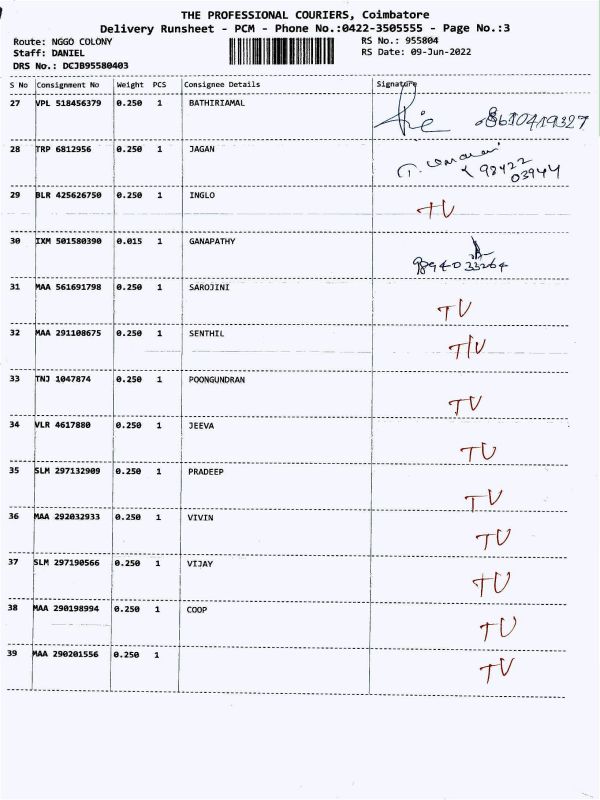 THE PROFESSIONAL COURIERS, Coimbatore
Delivery Runsheet - PCM - Phone No.:0422-3505555 - Page No.:3
Route: NGGO COLONY RS No.: 955804
Staff: DANIEL RS Date: 09-Jun-2022
DRS No.: DCJB95580403
S No Consignment No Weight PCS Consignee Details Signature
27 VPL 518456379 0.250 1 BATHIRIAMAL 8610419327
28 TRP 6812956 0.250 1 JAGAN
98422
03944
29 BLR 425626750 0.250 1 INGLO TU
30 IXM 501580390 0.015 1 GANAPATHY
9894033264
31 MAA 561691798 0.250 1 SAROJINI TU
32 MAA 291108675 0.250 1 SENTHIL T/U
33 TNJ 1047874 0.250 1 POONGUNDRAN TU
34 VLR 4617880 0.250 1 JEEVA TU
35 SLM 297132909 0.250 1 PRADEEP TU
36 MAA 292032933 0.250 1 VIVIN TU
37 SLM 297190566 0.250 1 VIJAY TU
38 MAA 290198994 0.250 1 COOP TU
39 MAA 290201556 0.250 1 TU